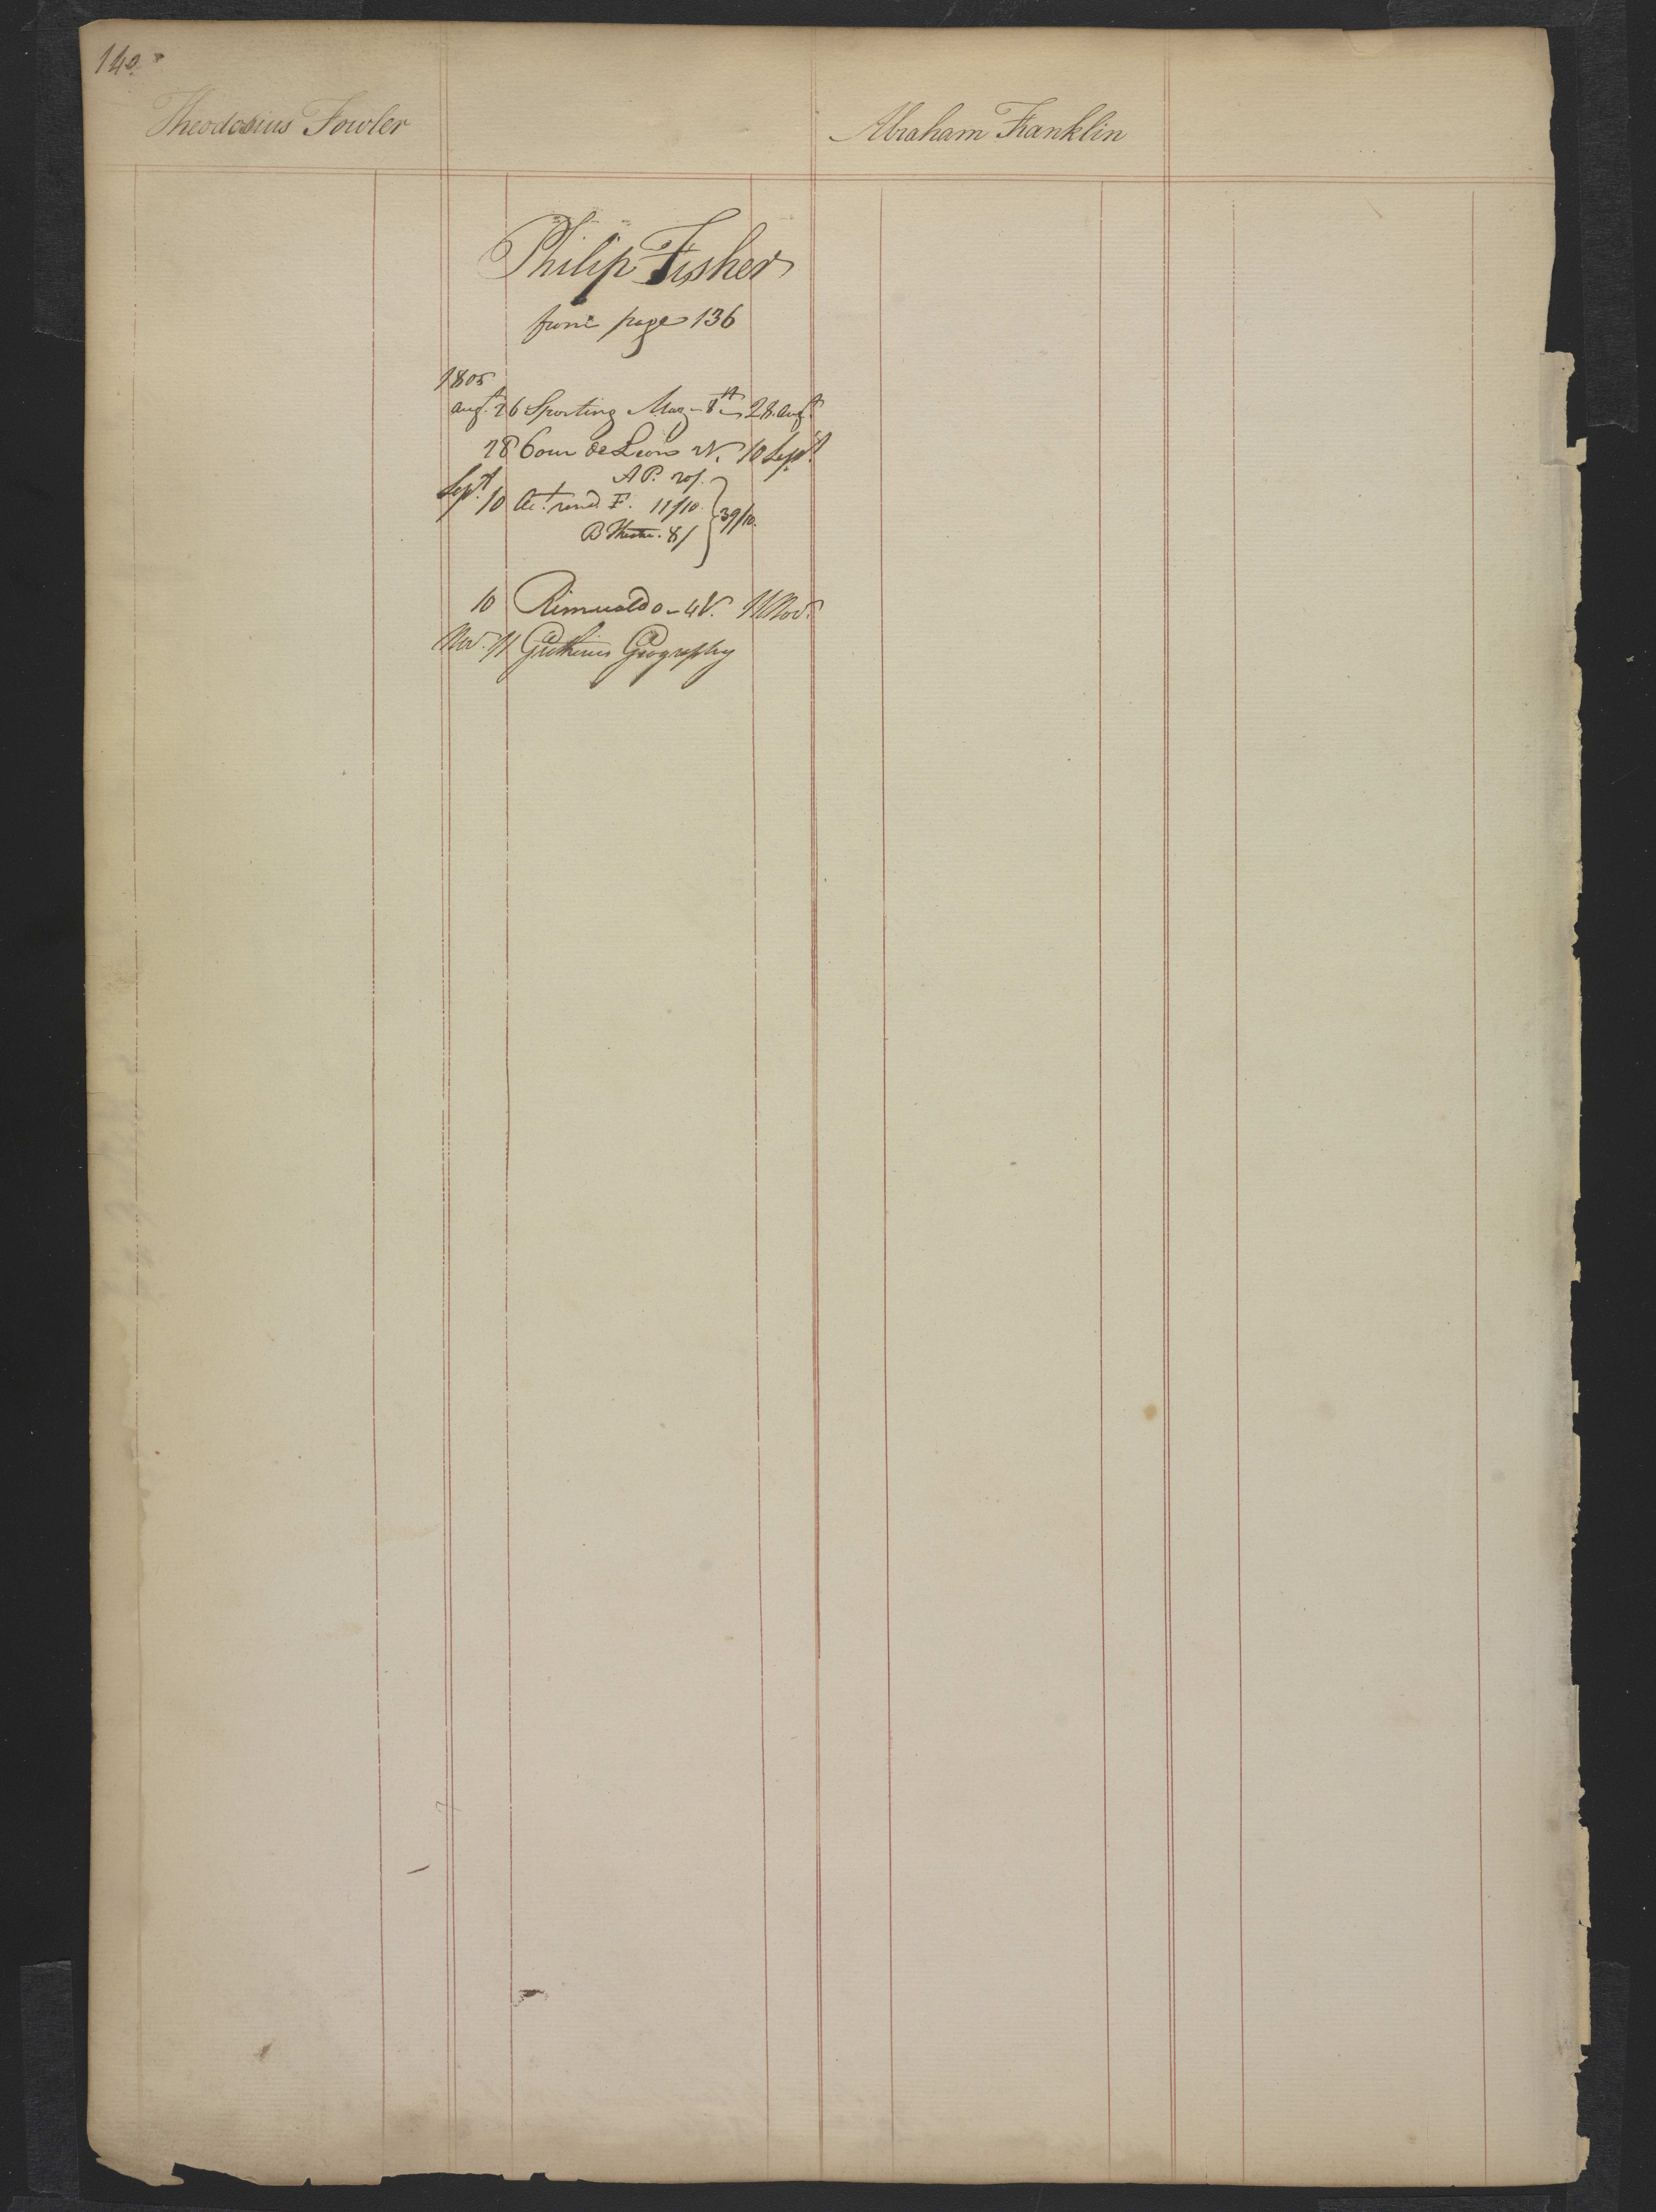 140
Theodosius Fowler
Abraham Franklin
Philip Fisher
from page 136
1805
Augt. 26 Sporting Mag - 8th 28 Augt
28 Cour de Lion 2V. 10 Sept.
A P. 20/.
Sept. 10 Act. rend. F. 11/10. 39/10.
B Theatre. 8/
10 Rimualdo - 4V. 11 Nov.
Nov. 11 Guthries Geography